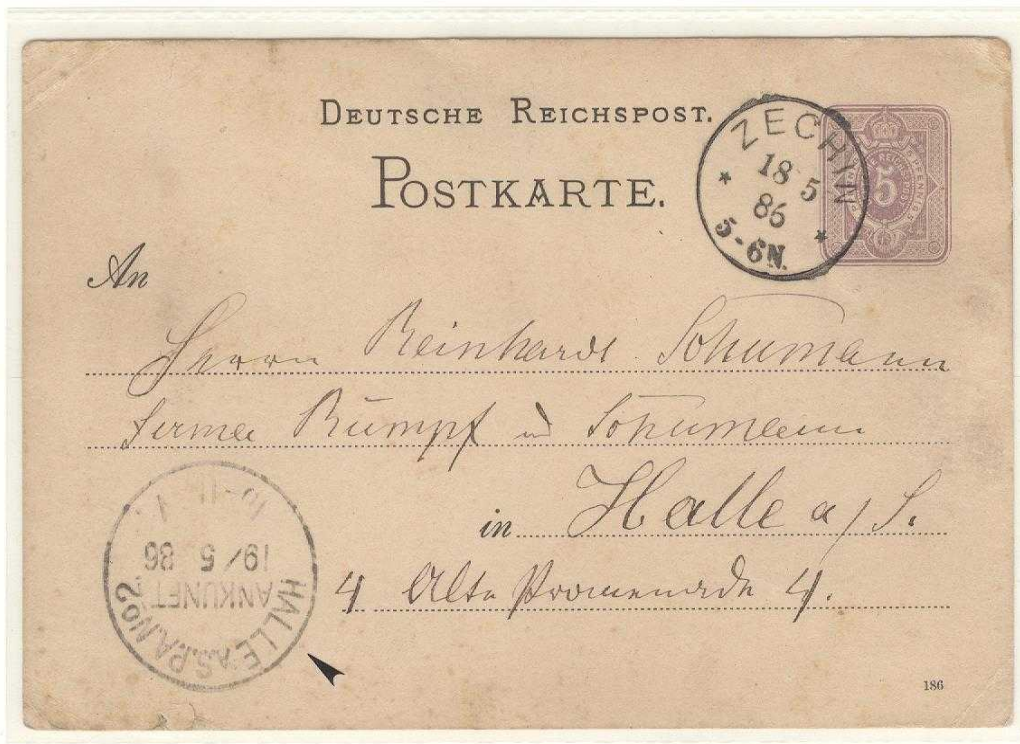 DEUTSCHE REICHSPOST.
POSTKARTE.
ZECHIN
18 5
86
5-6N.
5
An
Herrn Reinhardt Schumann
Firma Rumpf u Schumann
in Halle a/S.
4 Alte Promenade 4.
HALLE A.S. P.A. No 2
ANKUNFT
19/5 86
10-11 V
186